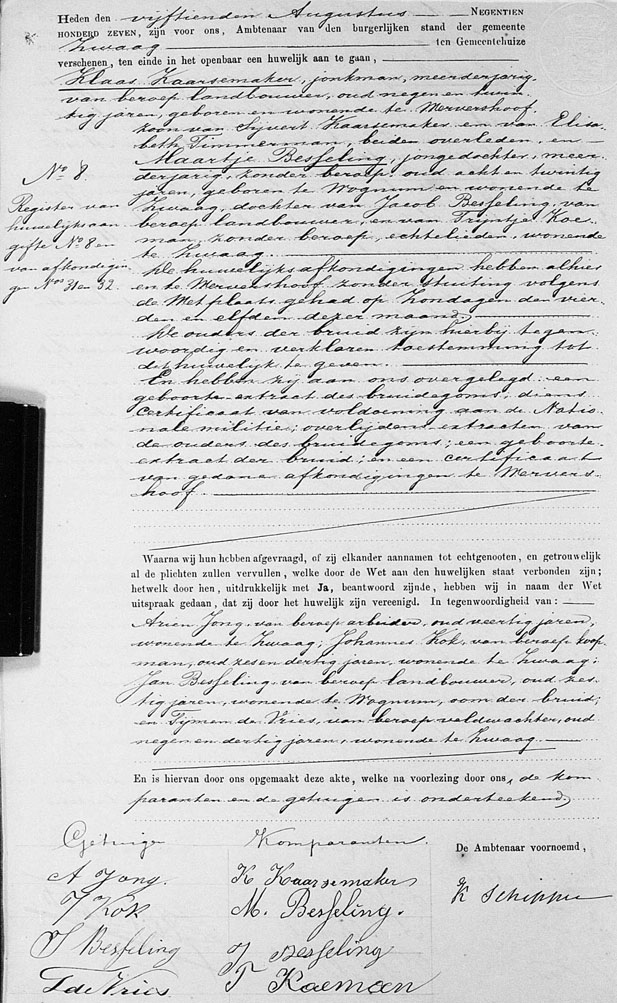 Heden den vijftienden Augustus NEGENTIEN
HONDERD ZEVEN, zijn voor ons, Ambtenaar van den burgerlijken stand der gemeente
Zwaag ten Gemeentehuize
verschenen, ten einde in het openbaar een huwelijk aan te gaan,
Klaas Kaarsemaker, jonkman, meerderjarig,
van beroep landbouwer, oud negen en twin-
tig jaren, geboren en wonende te Wervershoof,
zoon van Sijvert Kaarsemaker en van Elisa-
beth Timmerman, beiden overleden, en
Maartje Besseling, jongedochter, meer-
derjarig, zonder beroep, oud acht en twintig
jaren, geboren te Wognum en wonende te
Zwaag, dochter van Jacob Besseling, van
beroep landbouwer, en van Trijntje Koe-
man, zonder beroep, echtelieden, wonende
te Zwaag.
No 8.
Register van
huwelijksaan
gifte No 8 en
van afkondigin
gen Nos 31 en 32.
De huwelijksafkondigingen hebben alhier
en te Wervershoof zonder stuiting volgens
de Wet plaats gehad op Zondagen den vier-
den en elfden dezer maand.
De ouders der bruid zijn hierbij tegen-
woordig en verklaren toestemming tot
dit huwelijk te geven.
En hebben zij aan ons overgelegd: een
geboorte-extract des bruidegoms, diens
certificaat van voldoening aan de Natio-
nale militie; overlijdens extracten van
de ouders des bruidegoms; een geboorte-
extract der bruid; en een certificaat
van gedane afkondigingen te Wervers-
hoof.
Waarna wij hun hebben afgevraagd, of zij elkander aannamen tot echtgenooten, en getrouwelijk
al de plichten zullen vervullen, welke door de Wet aan den huwelijken staat verbonden zijn;
hetwelk door hen, uitdrukkelijk met Ja, beantwoord zijnde, hebben wij in naam der Wet
uitspraak gedaan, dat zij door het huwelijk zijn vereenigd. In tegenwoordigheid van:
Arien Jong, van beroep arbeider, oud veertig jaren,
wonende te Zwaag; Johannes Kok, van beroep koop-
man, oud zes en dertig jaren, wonende te Zwaag;
Jan Besseling, van beroep landbouwer, oud zes-
tig jaren, wonende te Wognum, oom der bruid;
en Tijmen de Vries, van beroep veldwachter, oud
negen en dertig jaren, wonende te Zwaag.
En is hiervan door ons opgemaakt deze akte, welke na voorlezing door ons, de kom
paranten en de getuigen is onderteekend.
Getuigen Komparanten. De Ambtenaar voornoemd,
A Jong. K Kaarsemaker K Schipper
J Kok M. Besseling.
J Besseling J Besseling
T de Vries T Koeman